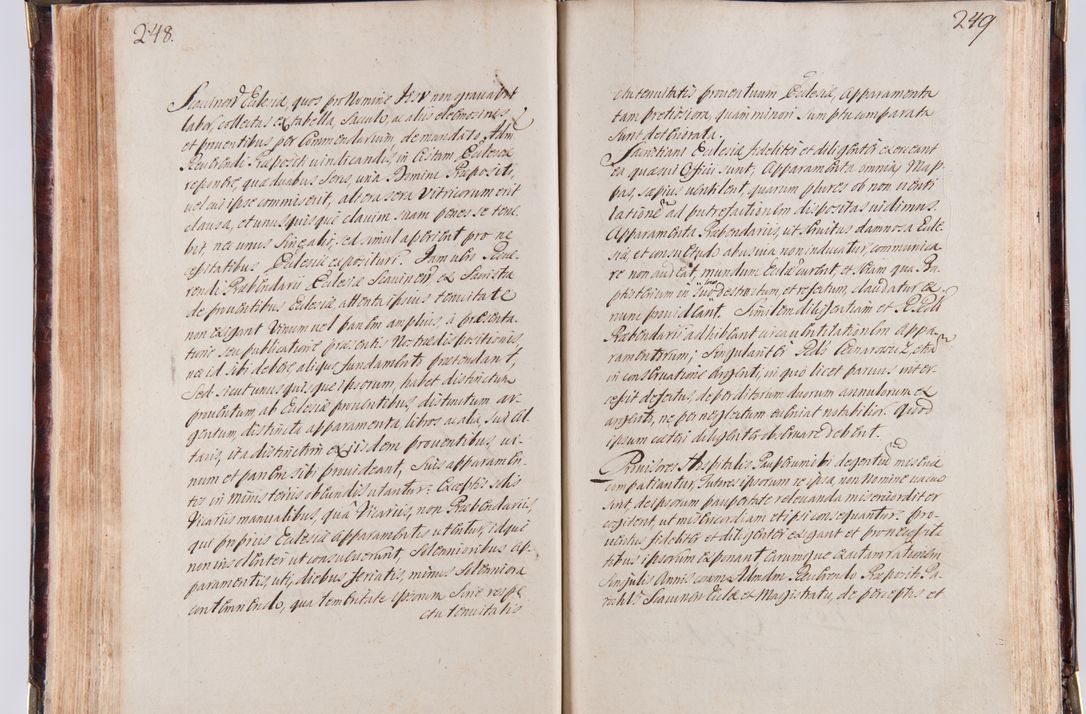 248.
Scavinensis Ecclesiæ, quos pro Nomine Jesu non gravabit
labor, collectas ex tabella, Sacculo, ac aliis eleemosinis
et proventibus per Commendarium, de mandato Adm
Reverendi Præpositi vindicandis, in Cistam Ecclesiæ
reponere, quæ duabus Seris, una Domini Præpositi,
vel cui ipse commiserit, altera sera Vitricorum erit
clausa, et unusquisque clavim suam penes se tene-
bit, nec unus sine alio, sed simul aperient pro ne-
cessitatibus Ecclesiæ exposituri. Jam vero Reve-
rendi Præbendarii Ecclesiæ Scavinen: ex Sacrista
de proventibus Ecclesiæ attenta ipsius tenuitate
non exigant Vinum vel panem amplius a præsenta-
tione seu publicatione præsentis Nostræ dispositionis,
nec id sibi debere aliquo fundamento prætendant,
Sed sicut unusquisque ipsorum, habet distinctum
proventum ab Ecclesiæ proventibus, distinctum ar-
gentum, distincta apparamenta, libros ac alia, sui al-
taris, ita distinctim ex iisdem proventibus vi-
num et panem sibi provideant, Suis apparamen-
tis in Ministeriis obeundis utantur: Exceptis solis
Vicariis manualibus, qua Vicariis, non Præbendariis,
qui propriis Ecclesiæ apparamentis utentur, idque
non insolenter ut consueverunt Solennioribus ap-
paramentis, uti, diebus feriatis, minus Solenniora
contemnendo, qua temeritate ipsorum Sine resp-
ectu tenuitatis
249
ctu tenuitatis proventuum Ecclesiæ, apparamenta
tam pretiosiora, quam minori Sumptu comparata
Sunt detrita.
Sacristiani Ecclesiæ fideliter et diligenter exerceant
ea quæ sui Officii sunt, Apparamenta omnia, Map-
pas, sæpius ventilent, quarum plures ob non venti
lationem ad putrefactionem dispositas vidimus.
Apparamenta Præbendariis, ut Servitus damnosa Eccle-
siæ, et consuetudo abusiva non inducatur, communica
re non audeat, mundum Ecclæ curent, et Etiam qua Ba-
ptisterium in suo loco destructum, et refectum, claudatur ex-
nunc provideant. Similem diligentiam et RR. DD
Præbendarii adhibeant circa ventilationem appa-
ramentorum; Singulariter Rdus Cenarowicz, etiam
in conservatione Argenti, in quo licet parvus inter-
cessit defectus, deperditorum duorum annulorum ex
argento, ne per neglectum eveniat notabilior. Quod
ipsum cæteri diligenter observare debent.
Provisores Hospitalis Pauperum ibi degentium miseriæ
compatiantur, Tutores ipsorum re ipsa, non Nomine vacuo
sint de ipsorum paupertate relevanda misericorditer
cogitent, ut misericordiam et ipsi consequantur: Pro-
ventus fideliter et diligenter exigant et pro necessita
tibus ipsorum exponant, earumque exactam rationem
singulis Annis coram Admdm Reverendo Præposit: Pa-
rochli Scavinen Ecclæ et Magistratu, de perceptis et